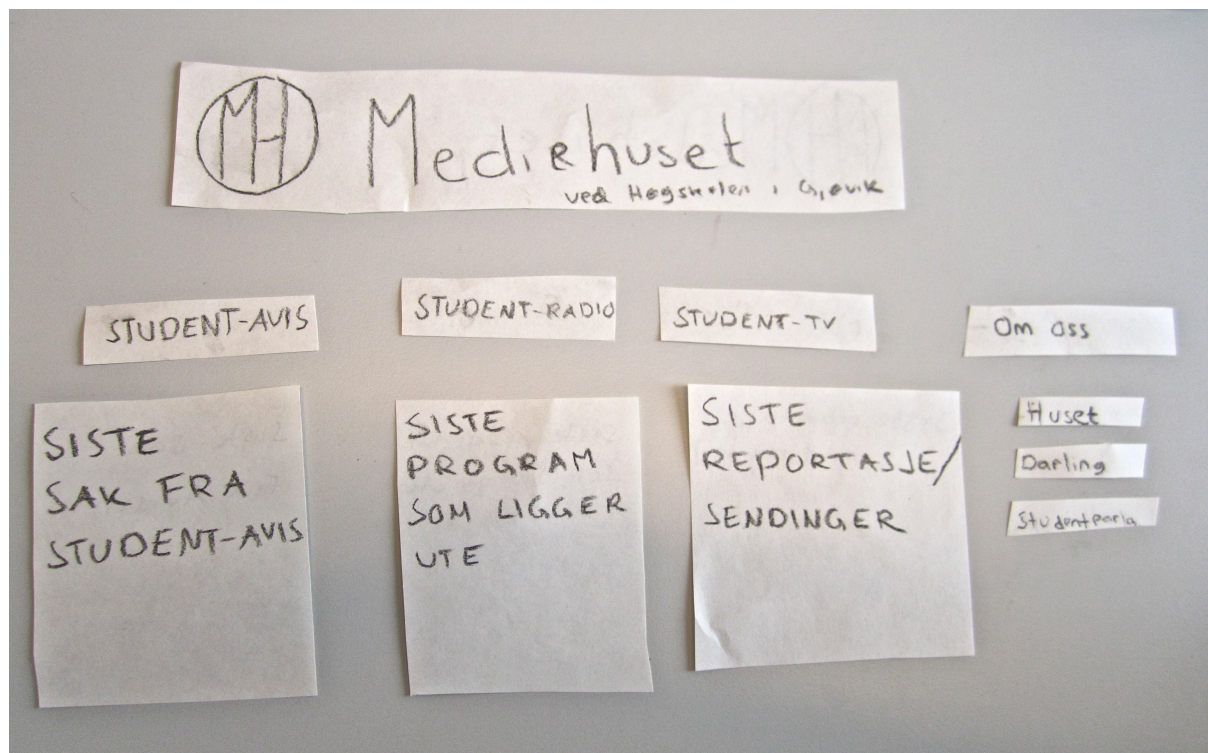 MH Mediehuset
ved Høgskolen i Gjøvik
STUDENT-AVIS
STUDENT-RADIO
STUDENT-TV
Om oss
SISTE
SAK FRA
STUDENT-AVIS
SISTE
PROGRAM
SOM LIGGER
UTE
SISTE
REPORTASJE/
SENDINGER
Huset
Darling
Studentparla